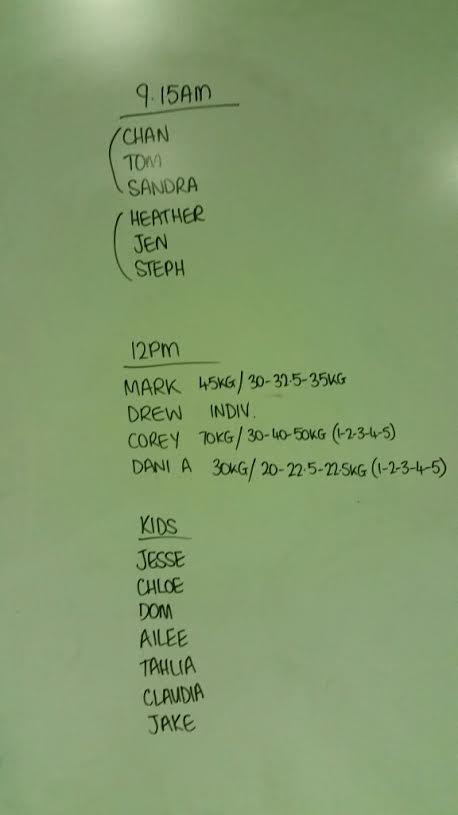 9.15AM
CHAN
TOM
SANDRA
HEATHER
JEN
STEPH
12PM
MARK 45KG/30-32.5-35KG
DREW INDIV.
COREY 70KG/30-40-50KG (1-2-3-4-5)
DANI A 30KG/20-22.5-22.5KG (1-2-3-4-5)
KIDS
JESSE
CHLOE
DOM
AILEE
TAHLIA
CLAUDIA
JAKE